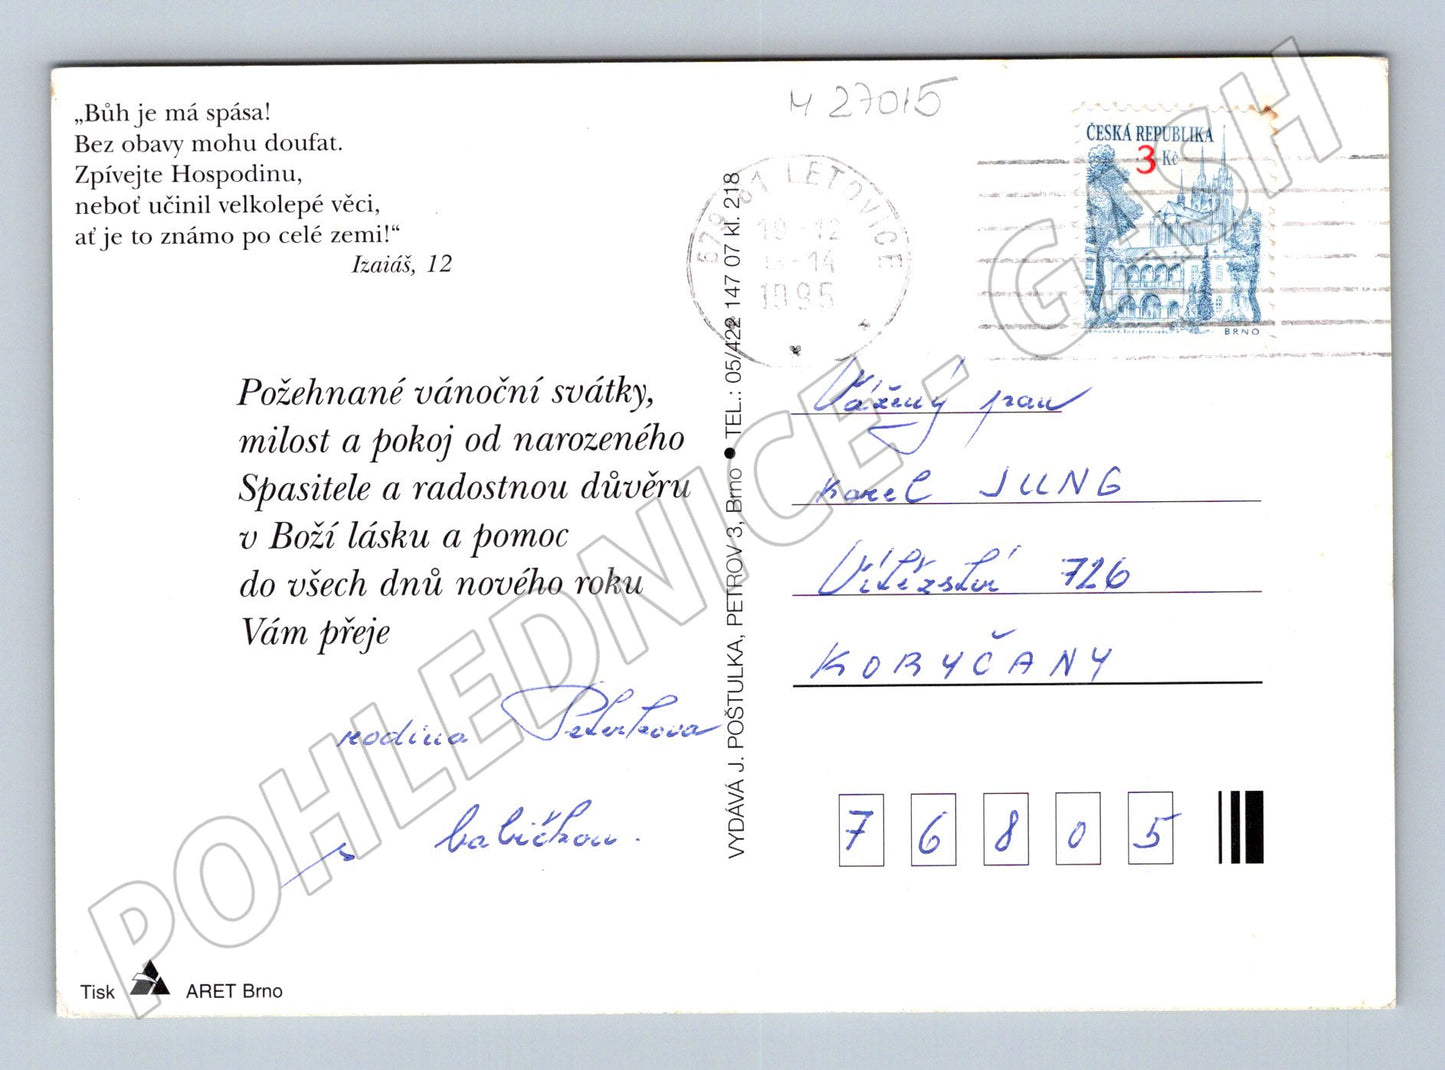 „Bůh je má spása!
Bez obavy mohu doufat.
Zpívejte Hospodinu,
neboť učinil velkolepé věci,
ať je to známo po celé zemi!“
Izaiáš, 12
Požehnané vánoční svátky,
milost a pokoj od narozeného
Spasitele a radostnou důvěru
v Boží lásku a pomoc
do všech dnů nového roku
Vám přeje
rodina Peterkova
s babičkou.
Tisk ARET Brno
VYDÁVÁ J. POŠTULKA, PETROV 3, Brno ● TEL.: 05/422 147 07 kl. 218
M 27015
679 61 LETOVICE
19.-12
-14
1995
ČESKÁ REPUBLIKA
3 Kč
BRNO
Vážený pan
Karel JUNG
Vítězství 726
KORYČANY
7 6 8 0 5
POHLEDNICE - GASH